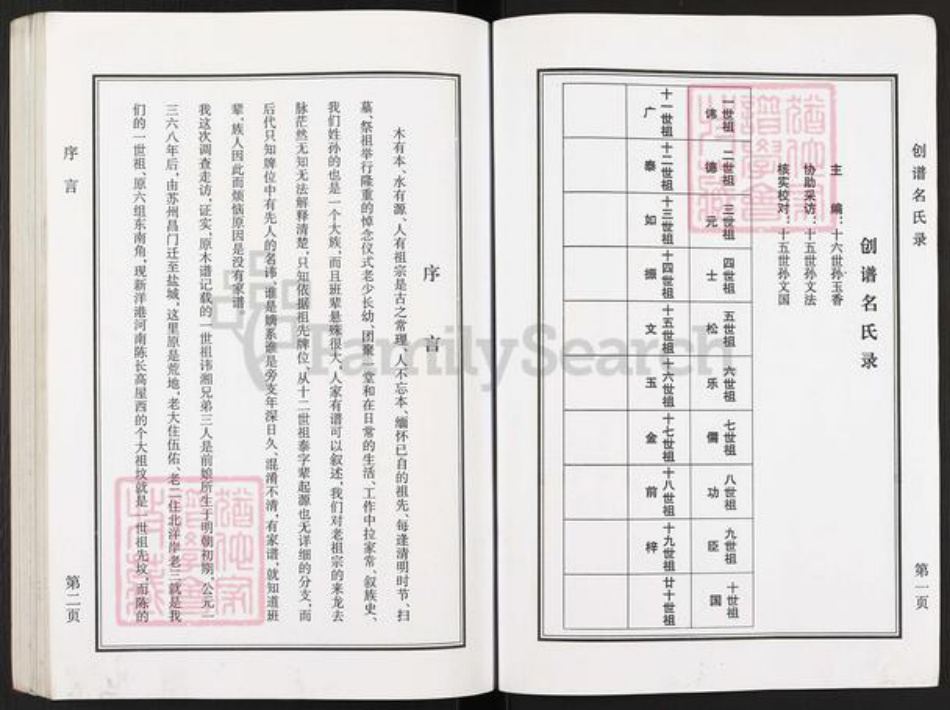 创谱名氏录
第一页
创谱名氏录
主 编：十六世孙玉香
协助采访：十五世孙文法
核实校对：十五世孙文国
一世祖 讳
二世祖 德
三世祖 元
四世祖 士
五世祖 松
六世祖 乐
七世祖 儒
八世祖 功
九世祖 臣
十世祖 国
十一世祖 广
十二世祖 泰
十三世祖 如
十四世祖 振
十五世祖 文
十六世祖 玉
十七世祖 金
十八世祖 前
十九世祖 梓
廿十世祖
序 言
木有本、水有源、人有祖宗是古之常理、人不忘本、缅怀已自的祖先、每逢清明时节、扫
墓、祭祖举行隆重的悼念仪式老少长幼、团聚一堂和在日常的生活、工作中拉家常、叙族史、
我们姓孙的也是一个大族、而且班辈悬殊很大、人家有谱可以叙述，我们对老祖宗的来龙去
脉茫然无知无法解释清楚，只知依据祖先牌位，从十二世祖泰字辈起源也无详细的分支，而
后代只知牌位中有先人的名讳、谁是嫡系谁是旁支年深日久、混淆不清，有家谱，就知道班
辈、族人因此而烦恼原因是没有家谱。
我这次调查走访，证实，原木谱记载的一世祖讳湘兄弟三人是前娘所生于明朝初期，公元一
三六八年后，由苏州昌门迁至盐城，这里原是荒地，老大住伍佑、老二住北洋岸老三就是我
们的一世祖、原六组东南角，现新洋港河南陈长高屋西的个大祖坟就是一世祖先坟，而陈的
序 言
第二页
FamilySearch